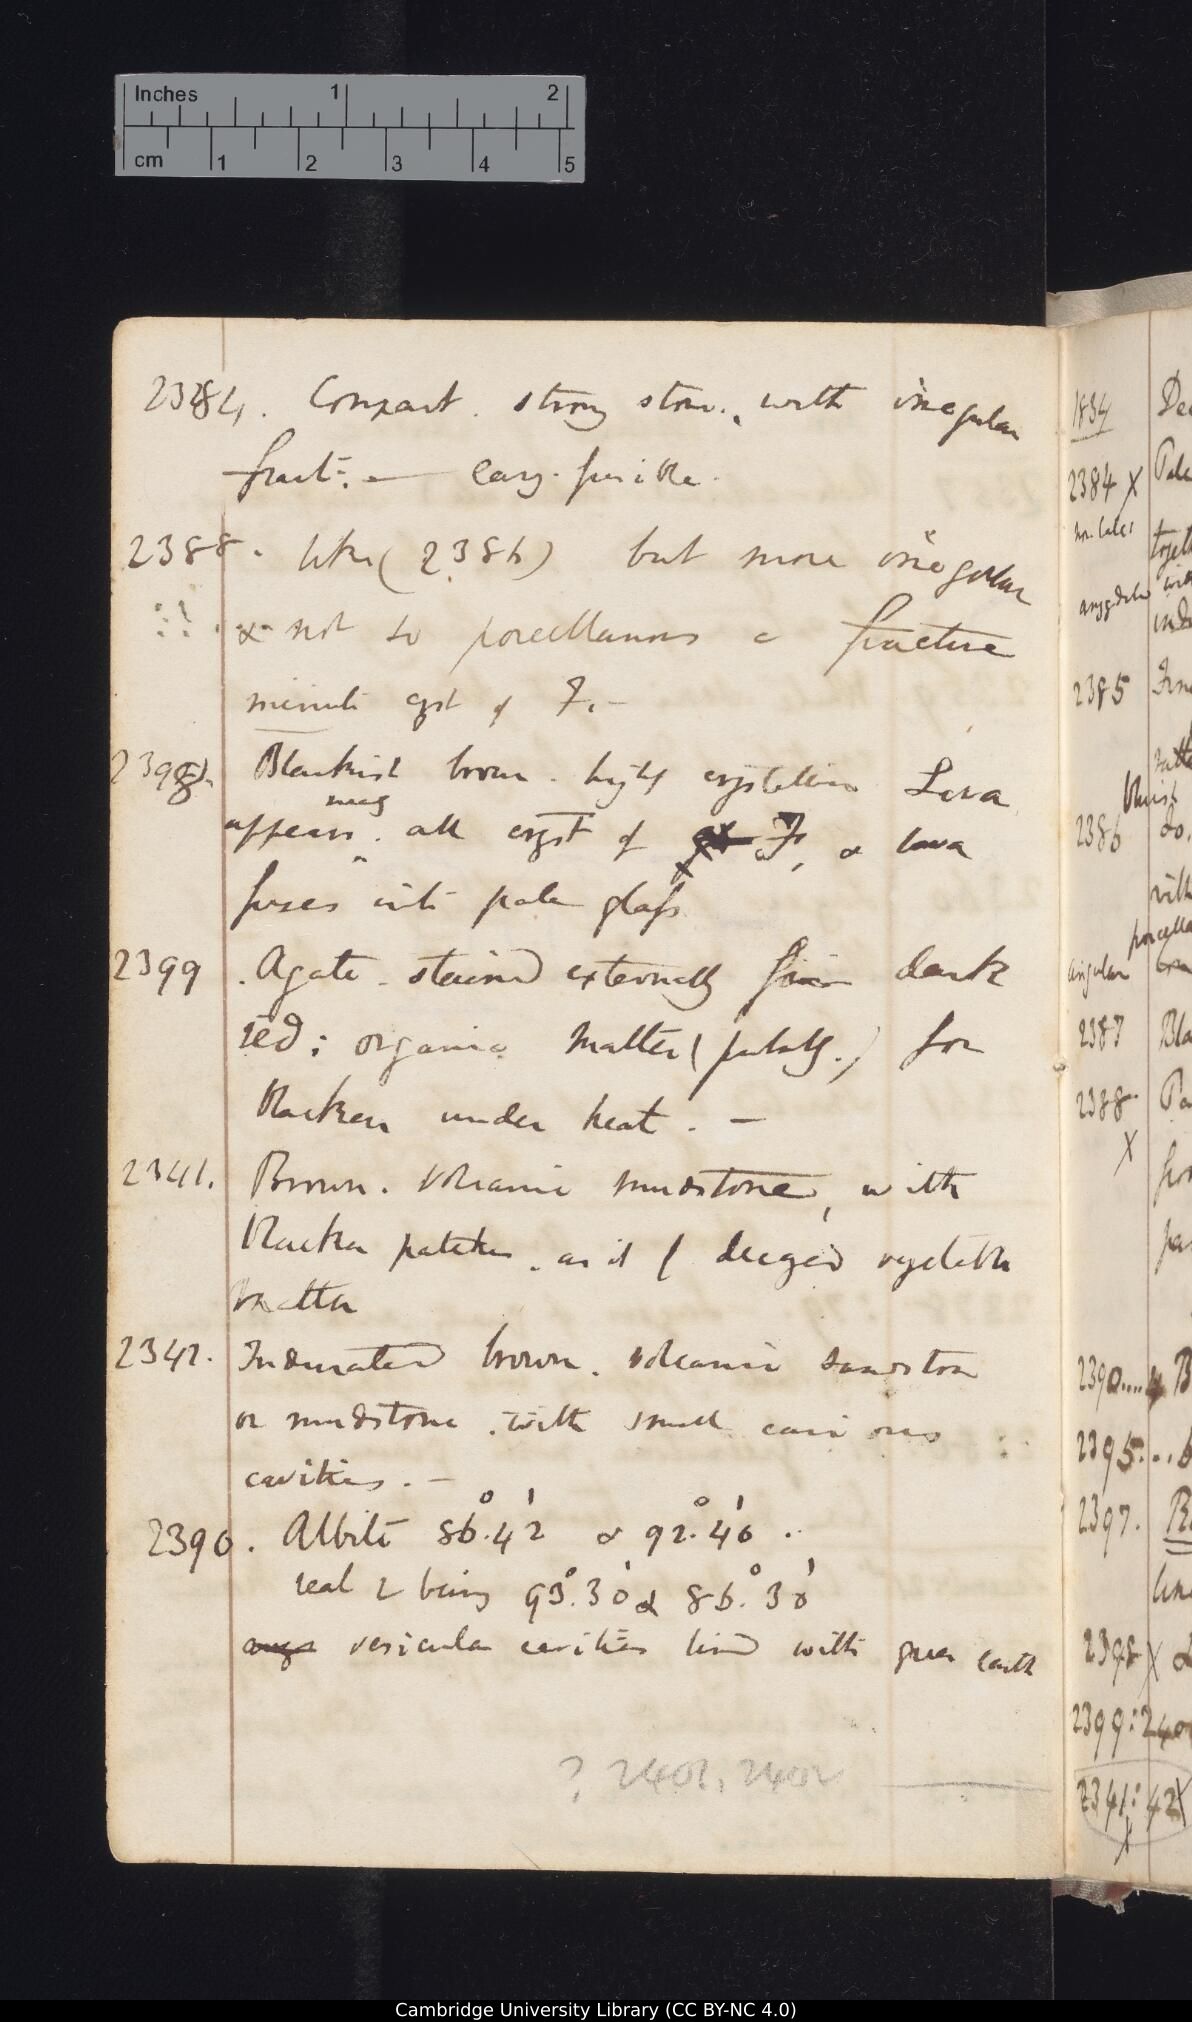 Inches 1 2
cm 1 2 3 4 5
2384. Compact. strong stone, with irregular
fract: — easy. fusible.
2388. like (2386) but more irregular
& not so porcellanous a fracture
minute cryst of F. —
2398. Blackish brown. highly crystalline Lava
appears. all cryst of F, & lava
fuses into pale glass
2399. Agate. stained externally fine dark
red; organic matter (probably.) for
blacken under heat. —
2341. Brown. Volcanic mudstone, with
blacker patches. as if vegetable
matter
2342. Indurated brown. volcanic sandstone
or mudstone. with small
cavities. —
2390. Albite 86°.42' & 92°.40' ..
real 2 being 93°.30' & 86°.30'
vesicular cavities lined with green earth
? 2401, 2402
1834
2384 X
2385
2386
angular
2387
2388
X
2390....4
2395...
2397.
2398 X
2399:240
2341:42X
Cambridge University Library (CC BY-NC 4.0)